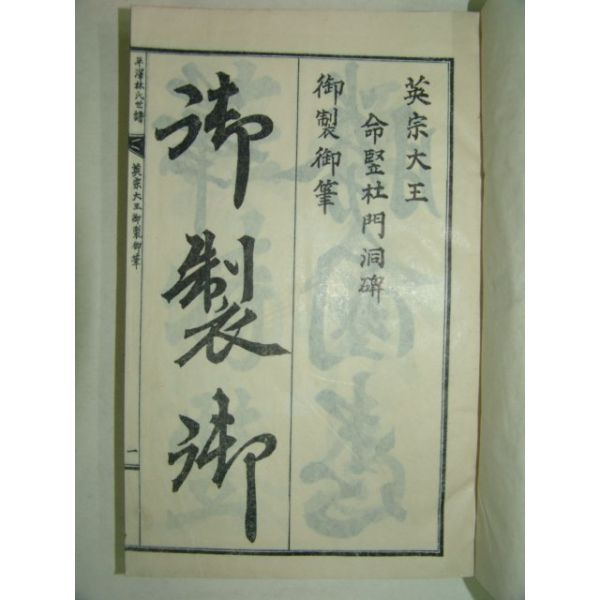 英宗大王
命竪杜門洞碑
御製御筆
御製御
平澤林氏世譜
英宗大王御製御筆
一